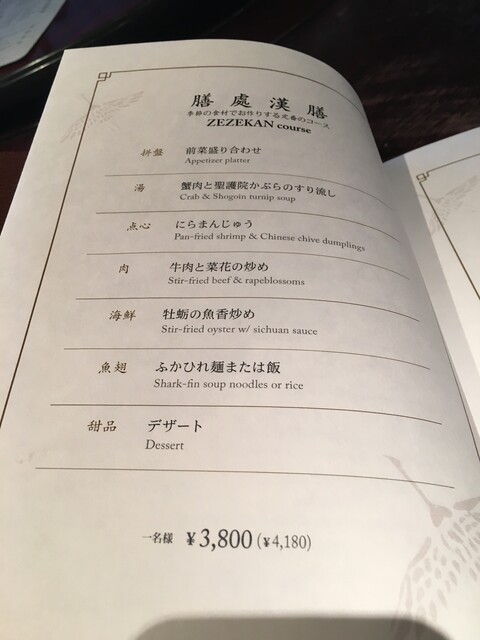 膳處漢膳
季節の食材でお作りする定番のコース
ZEZEKAN course
拼盤 前菜盛り合わせ
Appetizer platter
湯 蟹肉と聖護院かぶらのすり流し
Crab & Shogoin turnip soup
点心 にらまんじゅう
Pan-fried shrimp & Chinese chive dumplings
肉 牛肉と菜花の炒め
Stir-fried beef & rapeblossoms
海鮮 牡蛎の魚香炒め
Stir-fried oyster w/ sichuan sauce
魚翅 ふかひれ麺または飯
Shark-fin soup noodles or rice
甜品 デザート
Dessert
一名様 ¥3,800 (¥4,180)